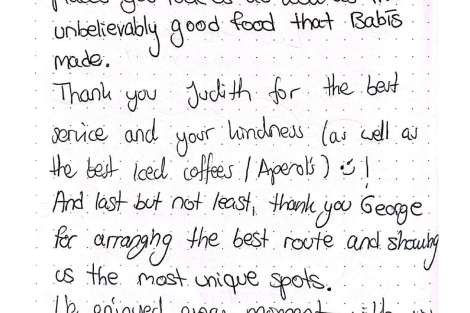 unbelievably good food that Babis
made.
Thank you Judith for the best
service and your kindness (as well as
the best Iced coffees / Aperol's) ☺!
And last but not least, thank you George
for arranging the best route and showing
us the most unique spots.
enjoyed every moment with